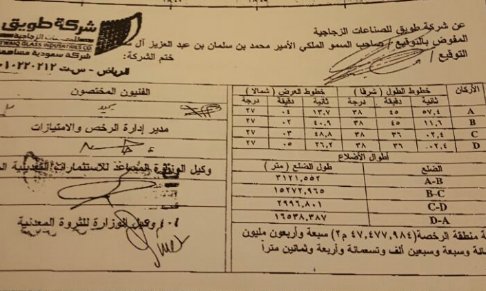 شركة طويق
للصناعات الزجاجية
TWAIQ GLASS INDUSTRIES CO.
شركة سعودية مساهمة
الرياض - س.ت ١٠١٠٢٢٠٢١٢
عن شركة طويق للصناعات الزجاجية
المفوض بالتوقيع / صاحب السمو الملكي الأمير محمد بن سلمان بن عبد العزيز آل
التوقيع / ختم الشركة:
الأركان خطوط الطول (شرقا) خطوط العرض (شمالا)
ثانية دقيقة درجة ثانية دقيقة درجة
A ٥٧,٤ ٤٥ ٣٨ ١٣,٧ ٠٤ ٢٧
B ١١,٩ ٤٥ ٣٨ ٤٠,٩ ٠٢ ٢٧
C ٠٢,٤ ٣٦ ٣٨ ٤٨,٨ ٠٣ ٢٧
D ٠٢,٤ ٣٦ ٣٨ ٢٦,٢ ٠٥ ٢٧
أطوال الأضلاع
الضلع طول الضلع (متر)
A-B ٣١٢١,٥٥٢
B-C ١٥٢٧٢,٩٦٥
C-D ٢٩٩٦,٨٠١
D-A ١٦٥٣٨,٣٨٧
منطقة الرخصة (٤٧,٤٧٧,٩٨٤ م٢) سبعة وأربعون مليون
وسبعة وسبعين ألف وتسعمائة وأربعة وثمانين متراً
الفنيون المختصون
مدير إدارة الرخص والامتيازات
وكيل الوزارة المساعد للاستثمارات التعدينية
وكيل الوزارة للثروة المعدنية